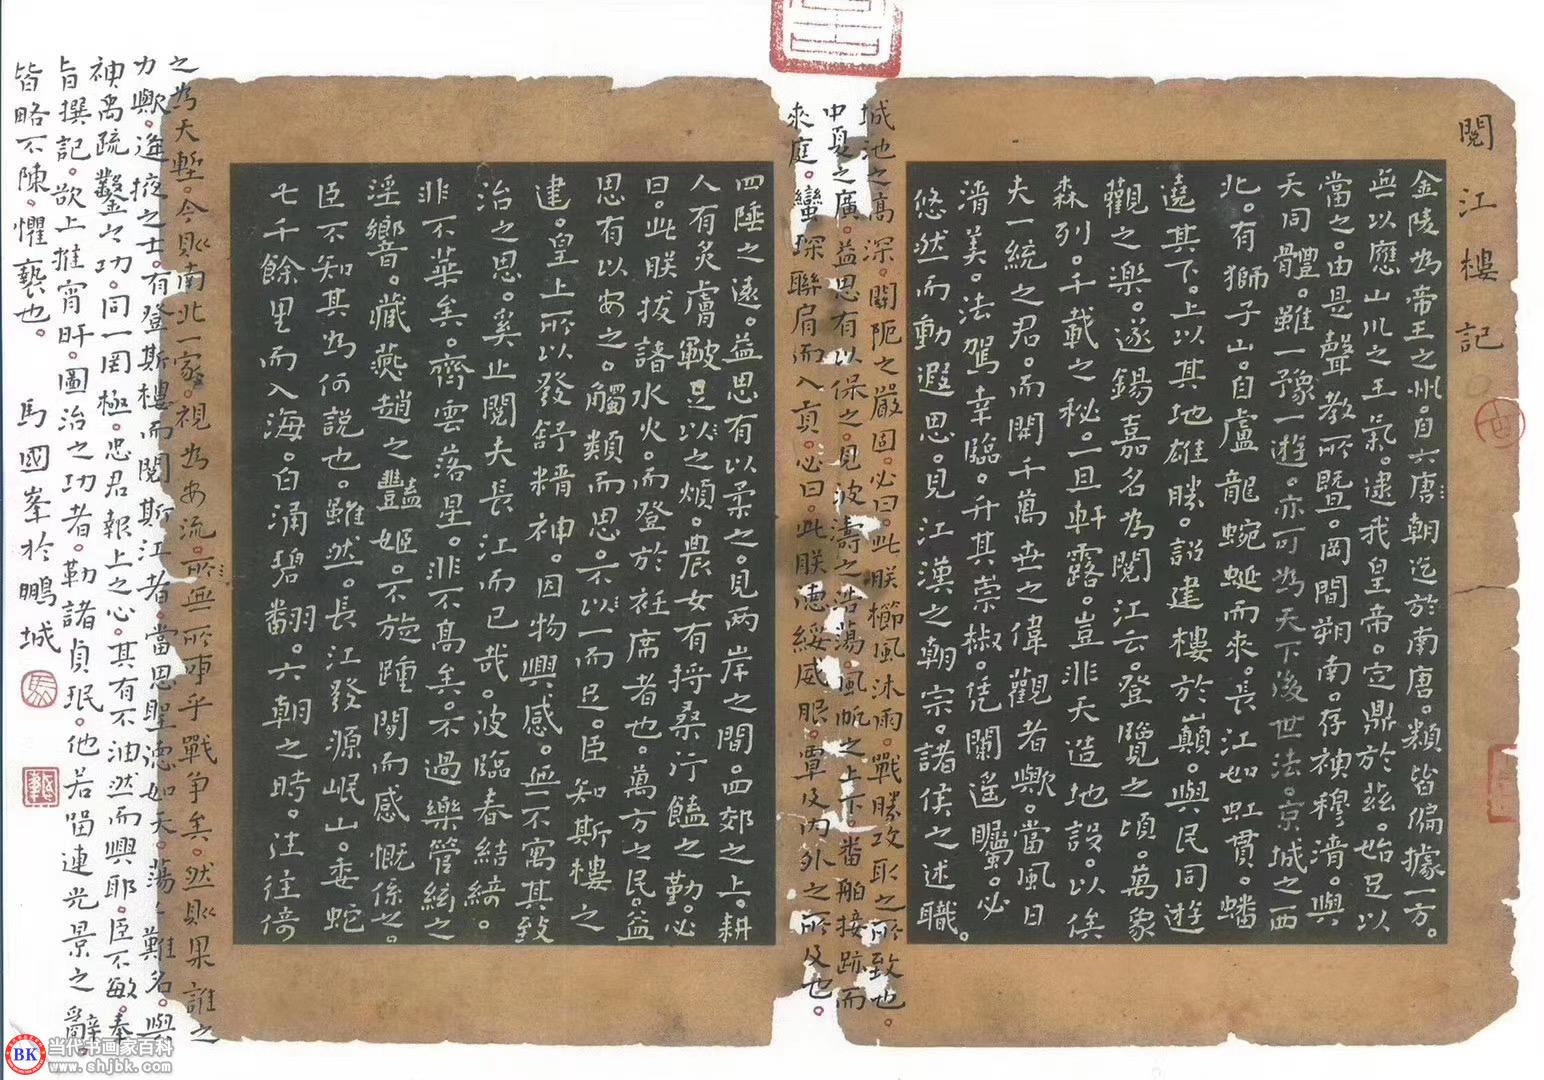 閱江樓記
金陵為帝王之州。自六唐朝迄於南唐。類皆偏據一方。
無以應山川之王氣。逮我皇帝。定鼎於茲。始足以
當之。由是聲教所暨。罔間朔南。存神穆清。與
天同體。雖一豫一遊。亦可為天下後世法。京城之西
北。有獅子山。自盧龍蜿蜒而來。長江如虹貫。蟠
遶其下。上以其地雄勝。詔建樓於巔。與民同遊
觀之樂。遂錫嘉名為閱江云。登覽之頃。萬象
森列。千載之秘。一旦軒露。豈非天造地設。以俟
夫一統之君。而開千萬世之偉觀者歟。當風日
清美。法駕幸臨。升其崇椒。凭闌遙矚。必
悠然而動遐思。見江漢之朝宗。諸侯之述職。
城池之高深。關阨之嚴固。必曰。此朕櫛風沐雨。戰勝攻取之所致也。
中夏之廣。益思有以保之。見波濤之浩蕩。風帆之上下。番舶接跡而
來庭。蠻琛聯肩而入貢。必曰。此朕德綏威服。覃及內外之所及也。
四陲之遠。益思有以柔之。見兩岸之間。四郊之上。耕
人有炙膚皸足以之煩。農女有捋桑行饁之勤。必
曰。此朕拔諸水火。而登於衽席者也。萬方之民。益
思有以安之。觸類而思。不以一而足。臣知斯樓之
建。皇上所以發舒精神。因物興感。無不寓其致
治之思。奚止閱夫長江而已哉。彼臨春結綺。
非不華矣。齊雲落星。非不高矣。不過樂管絃之
淫響。藏燕趙之豔姬。不旋踵間而感慨係之。
臣不知其為何說也。雖然。長江發源岷山。委蛇
七千餘里而入海。白涌碧翻。六朝之時。往往倚
之為天塹。今則南北一家。視為安流。所無所事乎戰爭矣。然則果誰之
力歟。逢掖之士。有登斯樓而閱斯江者。當思聖德如天。蕩〻難名。與
神禹疏鑿之功。同一罔極。忠君報上之心。其有不油然而興耶。臣不敏。奉
旨撰記。欲上推宵旰。圖治之功者。勒諸貞珉。他若留連光景之辭。
皆略不陳。懼褻也。 馬國峯於鵬城
BK 当代书画家百科
www.shjbk.com